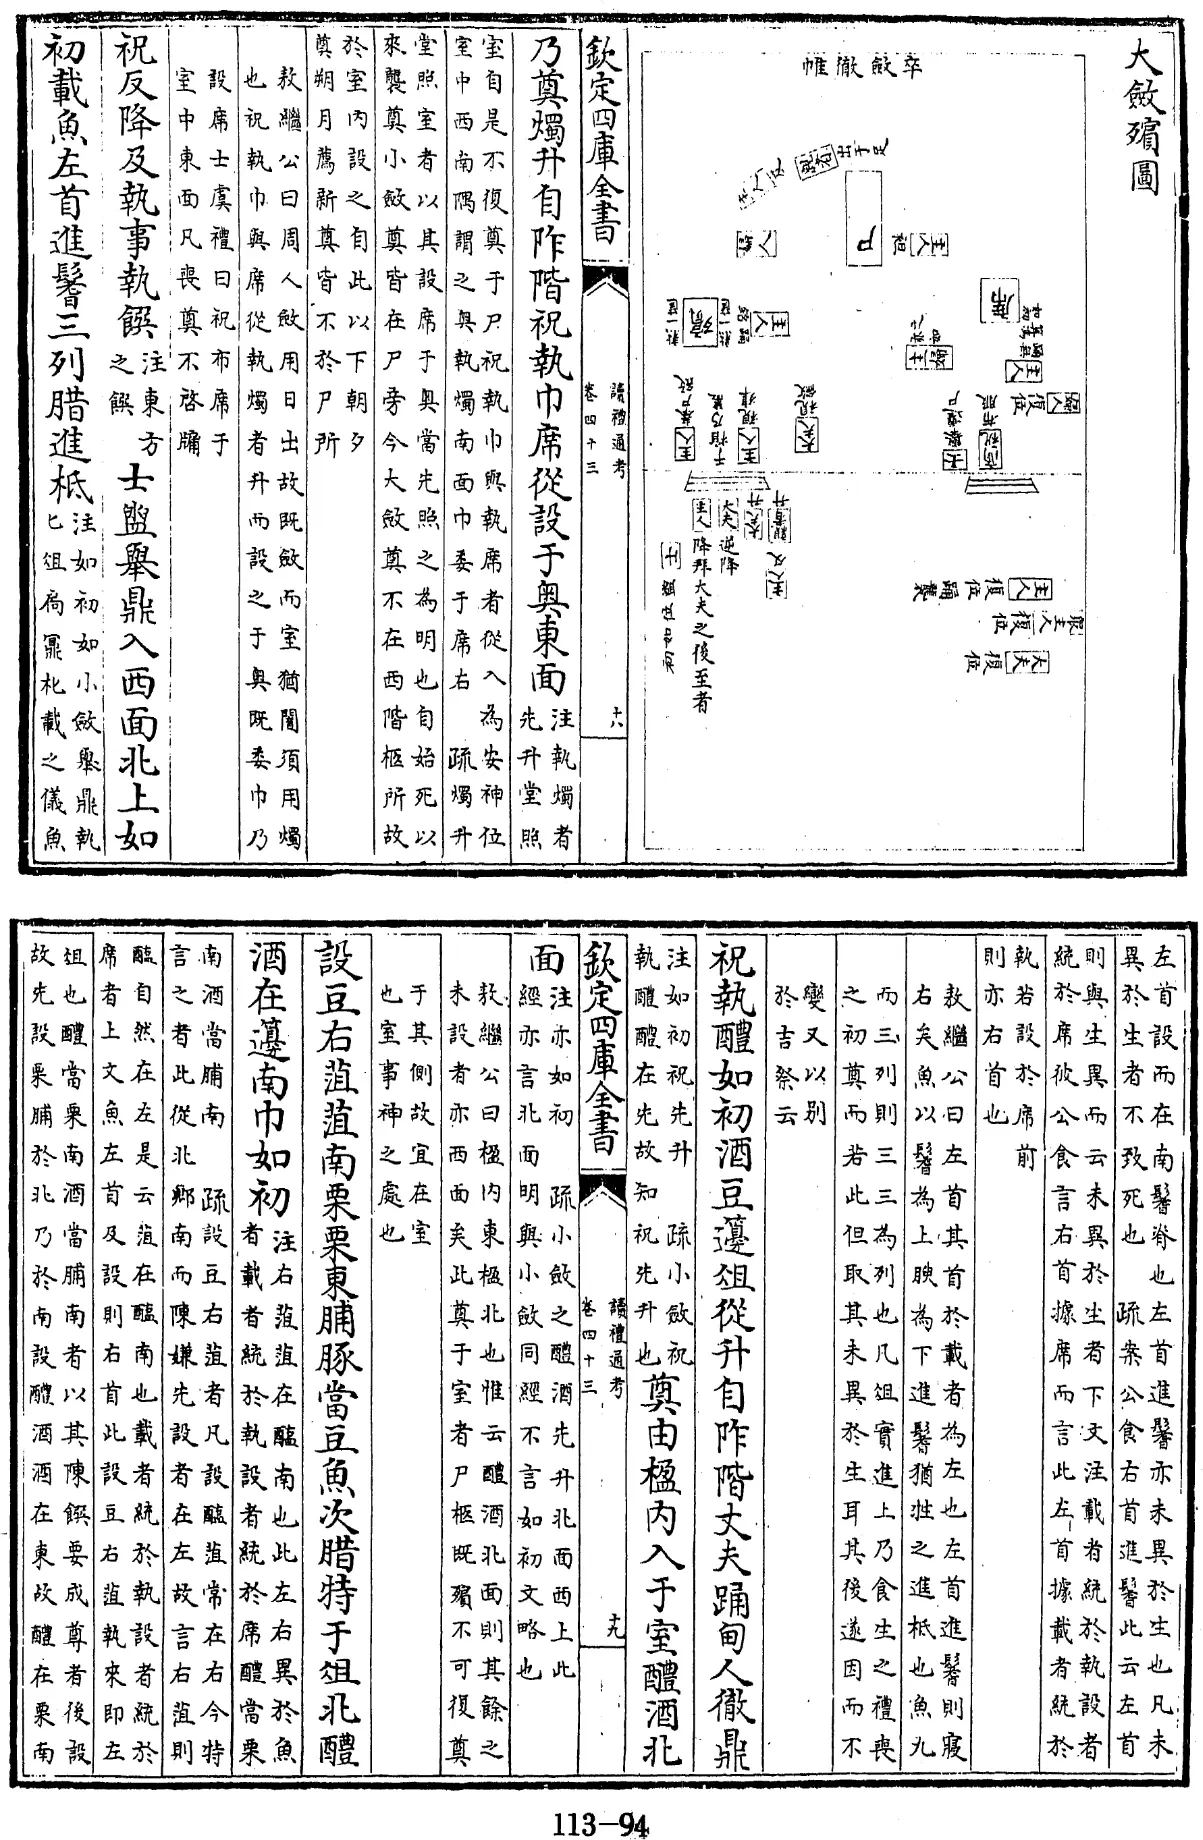 大斂殯圖
卒斂徹帷
主人袒
尸
席
殯
主人
主人復位踊襲
衆主人復位
大夫復位
大夫逆降
主人降拜大夫之後至者
欽定四庫全書
讀禮通考
卷四十三
十八
乃奠燭升自阼階祝執巾席從設于奧東面注執燭者先升堂照
室自是不復奠于尸祝執巾與執席者從入為安神位
室中西南隅謂之奧執燭南面巾委于席右 疏燭升
堂照室者以其設席于奧當先照之為明也自始死以
來襲奠小斂奠皆在尸旁今大斂奠不在西階柩所故
於室內設之自此以下朝夕
奠朔月薦新奠皆不於尸所
敖繼公曰周人斂用日出故既斂而室猶闇須用燭
也祝執巾與席從執燭者升而設之于奧既委巾乃
設席士虞禮曰祝布席于
室中東面凡喪奠不啓牖
祝反降及執事執饌注東方之饌士盥舉鼎入西面北上如
初載魚左首進鬐三列腊進柢注如初如小斂舉鼎執匕俎扃鼏朼載之儀魚
左首設而在南鬐脊也左首進鬐亦未異於生也凡未
異於生者不致死也 疏案公食右首進鬐此云左首
則與生異而云未異於生者下文注載者統於執設者
統於席彼公食言右首據席而言此左首據載者統於
執若設於席前
則亦右首也
敖繼公曰左首其首於載者為左也左首進鬐則寢
右矣魚以鬐為上腴為下進鬐猶牲之進柢也魚九
而三列則三三為列也凡俎實進上乃食生之禮喪
之初奠而若此但取其未異於生耳其後遂因而不
變又以別
於吉祭云
祝執醴如初酒豆籩俎從升自阼階丈夫踊甸人徹鼎
注如初祝先升 疏小斂祝
執醴醴在先故知祝先升也奠由楹內入于室醴酒北
欽定四庫全書
讀禮通考
卷四十三
十九
面注亦如初 疏小斂之醴酒先升北面西上此
經亦言北面明與小斂同經不言如初文略也
敖繼公曰楹內東楹北也惟云醴酒北面則其餘之
未設者亦西面矣此奠于室者尸柩既殯不可復奠
于其側故宜在室
也室事神之處也
設豆右菹菹南栗栗東脯豚當豆魚次腊特于俎北醴
酒在籩南巾如初注右菹菹在醢南也此左右異於魚者載者統於執設者統於席醴當栗
南酒當脯南 疏設豆右菹者凡設醢菹常在右今特
言之者此從北鄉南而陳嫌先設者在左故言右菹則
醢自然在左是云菹在醢南也載者統於執設者統於
席者上文魚左首及設則右首此設豆右菹執來即左
俎也醴當栗南酒當脯南者以其陳饌要成尊者後設
故先設栗脯於北乃於南設醴酒酒在東故醴在栗南
113-94